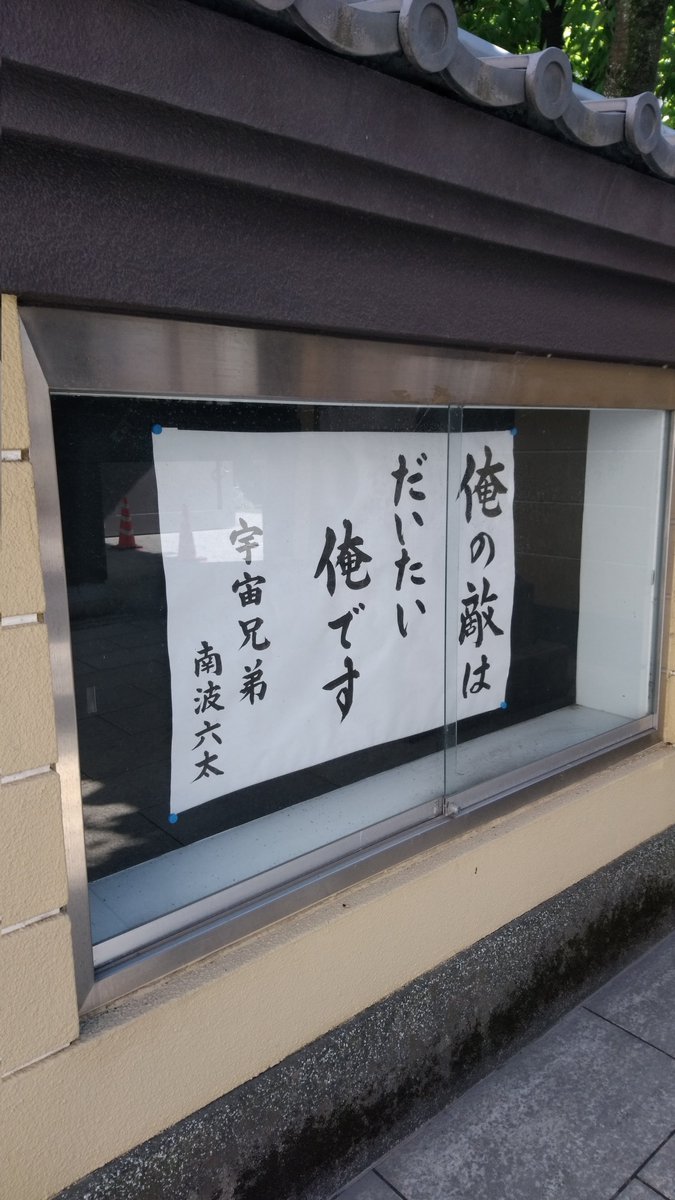 俺の敵は
だいたい
俺です
宇宙兄弟
南波六太